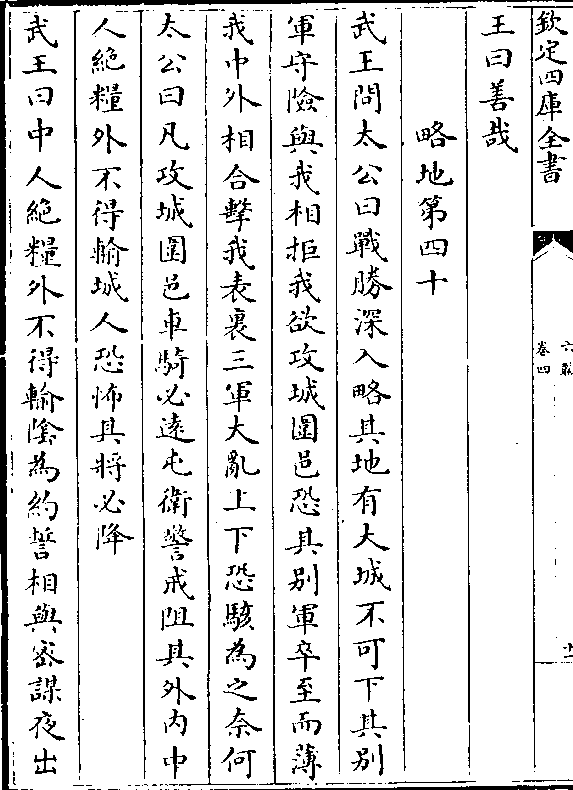 欽定四庫全書
六韜
卷四
王曰善哉
略地第四十
武王問太公曰戰勝深入略其地有大城不可下其別
軍守險與我相拒我欲攻城圍邑恐其別軍卒至而薄
我中外相合擊我表裏三軍大亂上下恐駭為之奈何
太公曰凡攻城圍邑車騎必遠屯衛警戒阻其外内中
人絶糧外不得輸城人恐怖其將必降
武王曰中人絶糧外不得輸陰為約誓相與密謀夜出